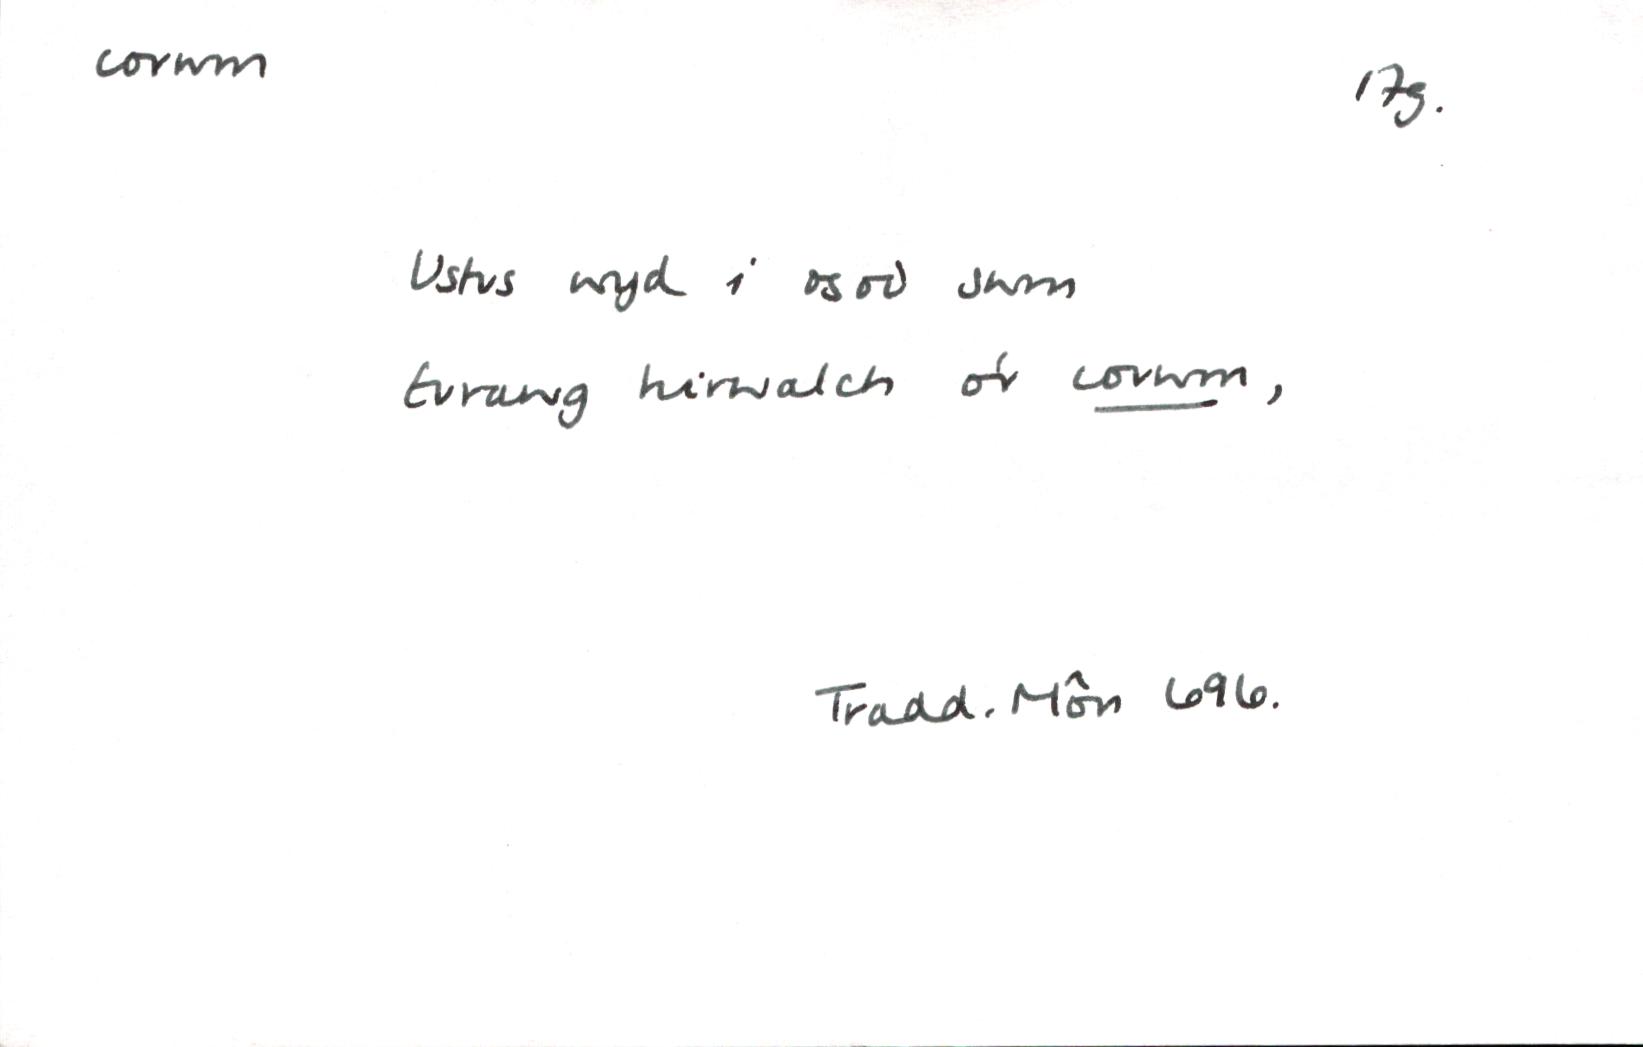 corwm
17g.
Ustus wyd i osod swm
Evrawg hirwalch o'r corwm,
Tradd. Môn 696.